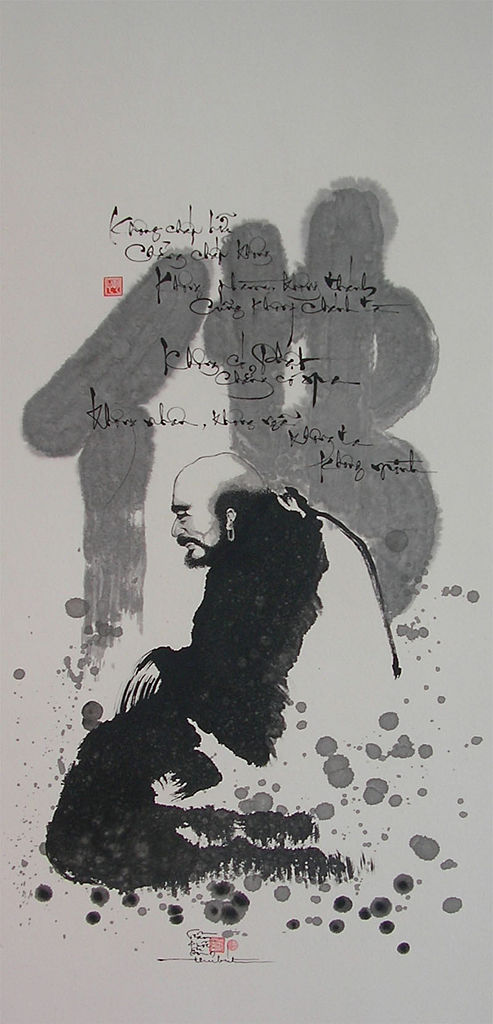 佛
Không chấp hữu
Chẳng chấp không
Không phàm, không thánh
Cũng không chánh tà
Không có Phật
Chẳng có ma
Không nhân, không ngã
không ta
không mình